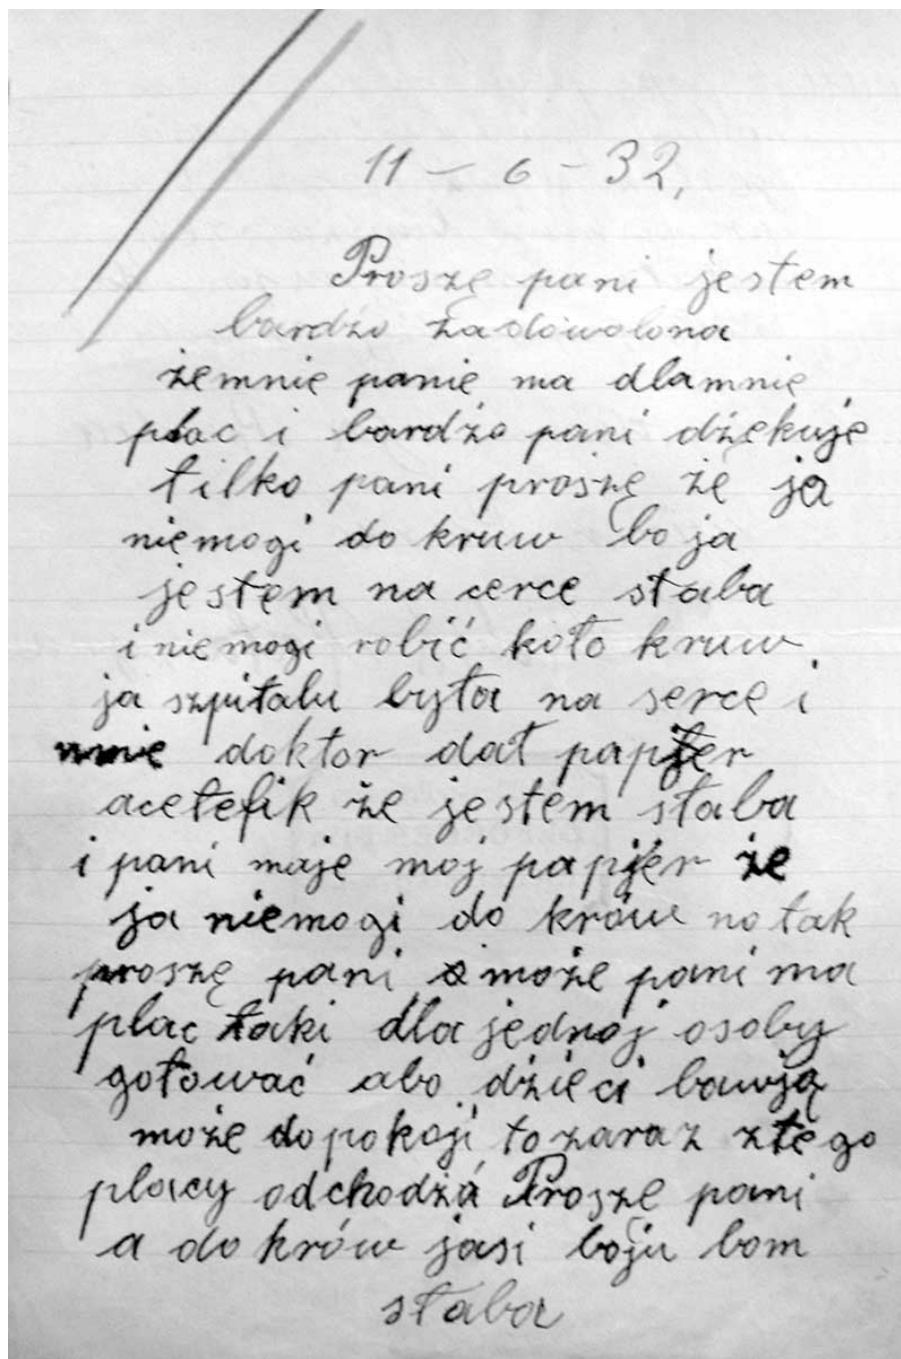 11 – 6 – 32,
Proszę pani jestem
bardżo żadowolona
żemnie panie ma dlamnie
plac i bardżo pani dżękuje
tilko pani proszę że ja
niemogi do kruw bo ja
jestem na cerce słaba
i niemogi robić koło kruw
ja szpitalu była na serce i
mnie doktor dał papier
acetefik że jestem słaba
i pani maje moj papjer że
ja niemogi do krów no tak
proszę pani może pani ma
plac taki dla jednoj osoby
gotować abo dżieci bawją
może do pokoji to zaraz ztego
placy odchodżá Proszę pani
a do krów jasi boju bom
słaba